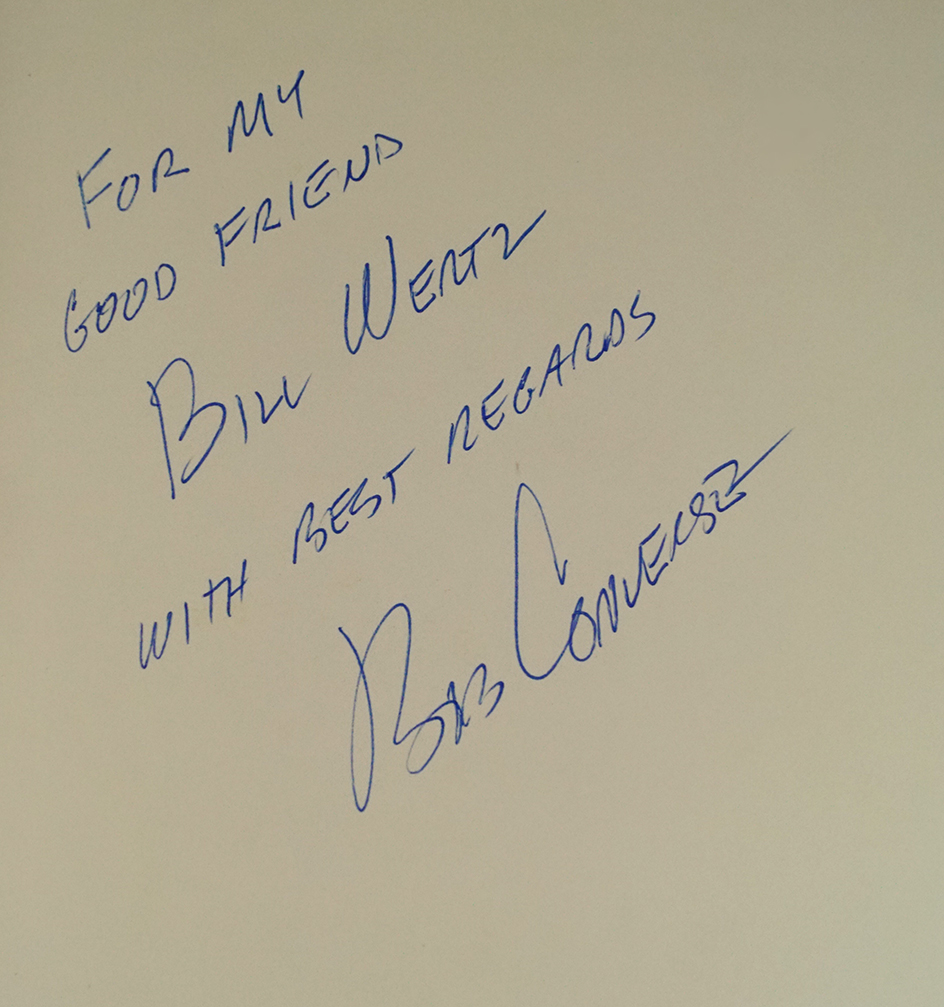 FOR MY
GOOD FRIEND
BILL WERTZ
WITH BEST REGARDS
BOB CONVERSE